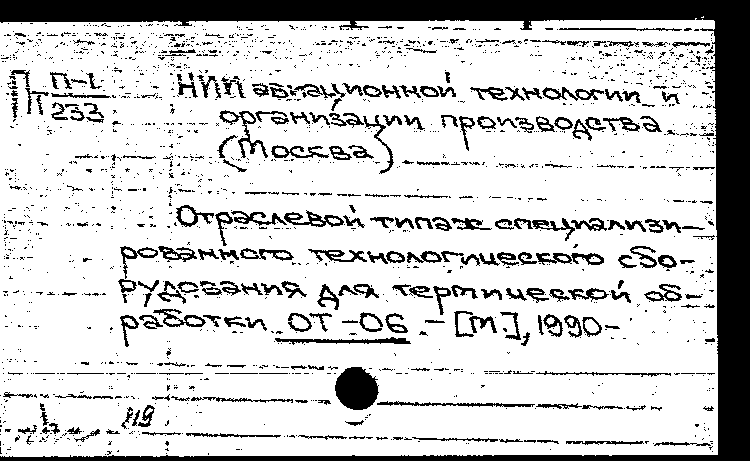 П-1
233
НИИ авиационной технологии и
организации производства.
(Москва)
Отраслевой типаж специализи-
рованного технологического обо-
рудования для термической об-
работки ОТ-06. - [М.], 1990-
119